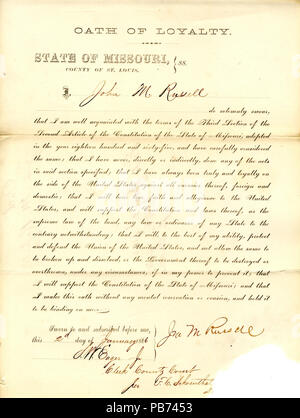 OATH OF LOYALTY.
STATE OF MISSOURI, } ss.
COUNTY OF ST. LOUIS.
I, John M Russell
do solemnly swear,
that I am well acquainted with the terms of the Third Section of the
Second Article of the Constitution of the State of Missouri, adopted
in the year eighteen hundred and sixty-five, and have carefully considered the
same; that I have never, directly or indirectly, done any of the acts
in said section specified; that I have always been truly and loyally
on the side of the United States against all enemies thereof, foreign and
domestic; that I will bear true faith and allegiance to the United
States, and will support the Constitution and laws thereof, as the
supreme law of the land, any law or ordinance of any State to the
contrary notwithstanding; that I will, to the best of my ability, protect
and defend the Union of the United States, and not allow the same to
be broken up and dissolved, or the Government thereof to be destroyed or
overthrown, under any circumstances, if in my power to prevent it; that I
will support the Constitution of the State of Missouri; and that
I make this oath without any mental reservation or evasion, and hold it
to be binding on me.
Sworn to and subscribed before me,
this 2d day of January 186
Jno M Russell
Clerk County Court
alamy
Image ID: PB7453
www.alamy.com